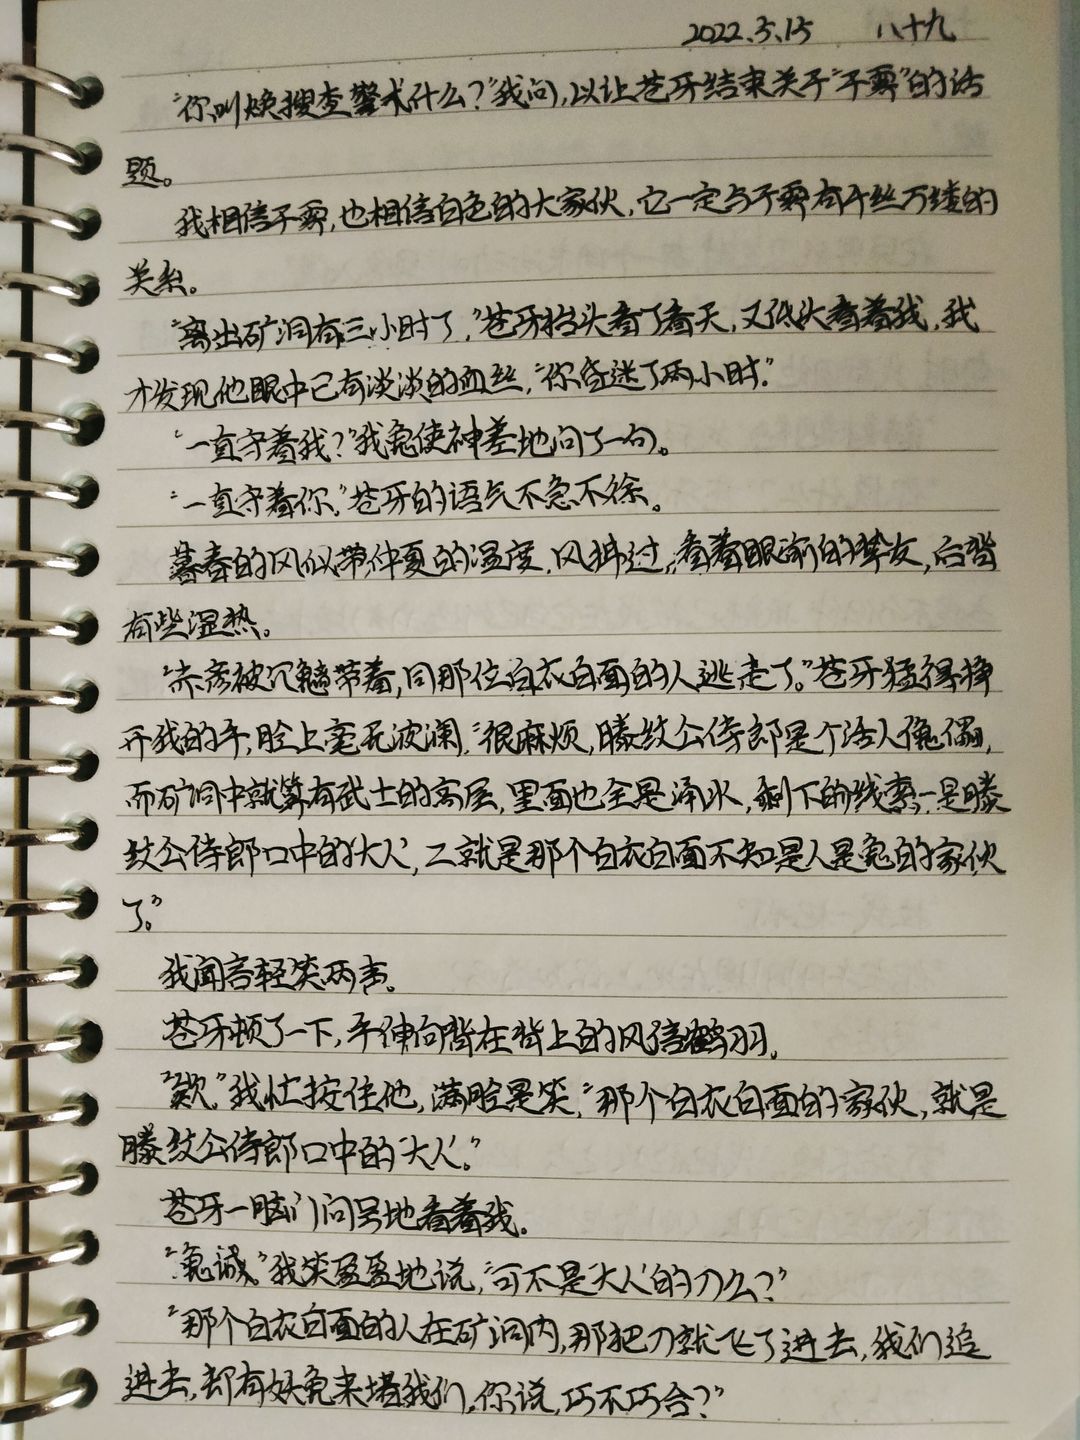 2022.3.15 八十九
“你叫焕搜查警犬什么？”我问，以让苍牙结束关于“子霁”的话
题。
我相信子霁，也相信白色的大家伙，它一定与子霁有千丝万缕的
关系。
“离出矿洞有三小时了，”苍牙抬头看了看天，又低头看着我，我
才发现他眼中已有淡淡的血丝，“你昏迷了两小时。”
“一直守着我？”我鬼使神差地问了一句。
“一直守着你。”苍牙的语气不急不徐。
暮春的风似带仲夏的温度，风拂过，看着眼前的挚友，后背
有些湿热。
“赤彦被冗髓带着，同那位白衣白面的人逃走了。”苍牙猛得挣
开我的手，脸上毫无波澜，“很麻烦，滕纹公侍郎是个活人傀儡，
而矿洞中就算有武士的寓居，里面也全是泽水，剩下的线索一是滕
纹公侍郎口中的‘大人’，二就是那个白衣白面不知是人是鬼的家伙
了。”
我闻言轻笑两声。
苍牙顿了一下，手伸向背在背上的风信鹤羽。
“欸，”我忙按住他，满脸是笑，“那个白衣白面的家伙，就是
滕纹公侍郎口中的‘大人’。”
苍牙一脑门问号地看着我。
“鬼诚，”我笑盈盈地说，“可不是‘大人’的刀么？”
“那个白衣白面的人在矿洞内，那把刀就飞了进去，我们追
进去，却有妖鬼来堵我们，你说，巧不巧合？”